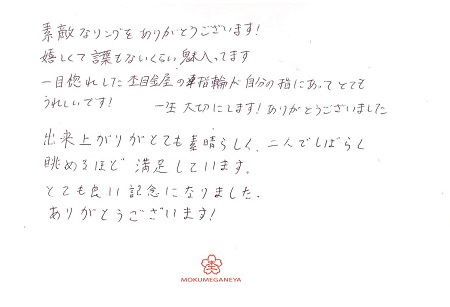 素敵なリングをありがとうございます!
嬉しくて言葉もないくらい魅入ってます
一目惚れした杢目金屋の指輪が自分の指にあってとても
うれしいです! 一生大切にします!ありがとうございました
出来上がりがとても素晴らしく、二人でしばらく
眺めるほど満足しています。
とても良い記念になりました。
ありがとうございます!
MOKUMEGANEYA